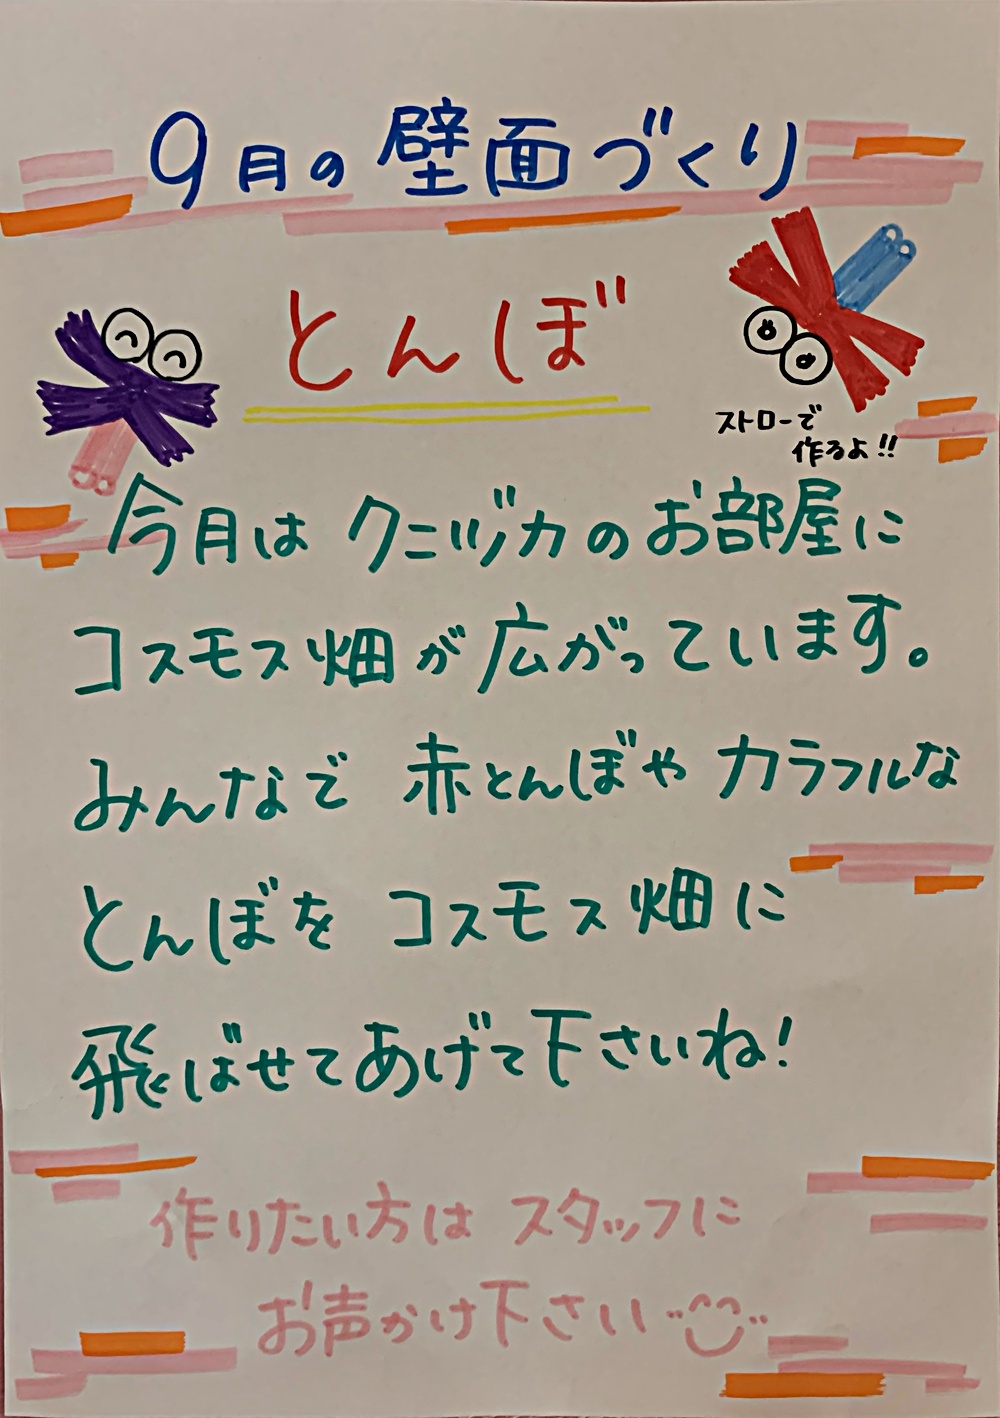 9月の壁面づくり
とんぼ
ストローで
作るよ!!
今月は クニヅカのお部屋に
コスモス畑が広がっています。
みんなで 赤とんぼや カラフルな
とんぼを コスモス畑に
飛ばせてあげて下さいね!
作りたい方は スタッフに
お声かけ下さい